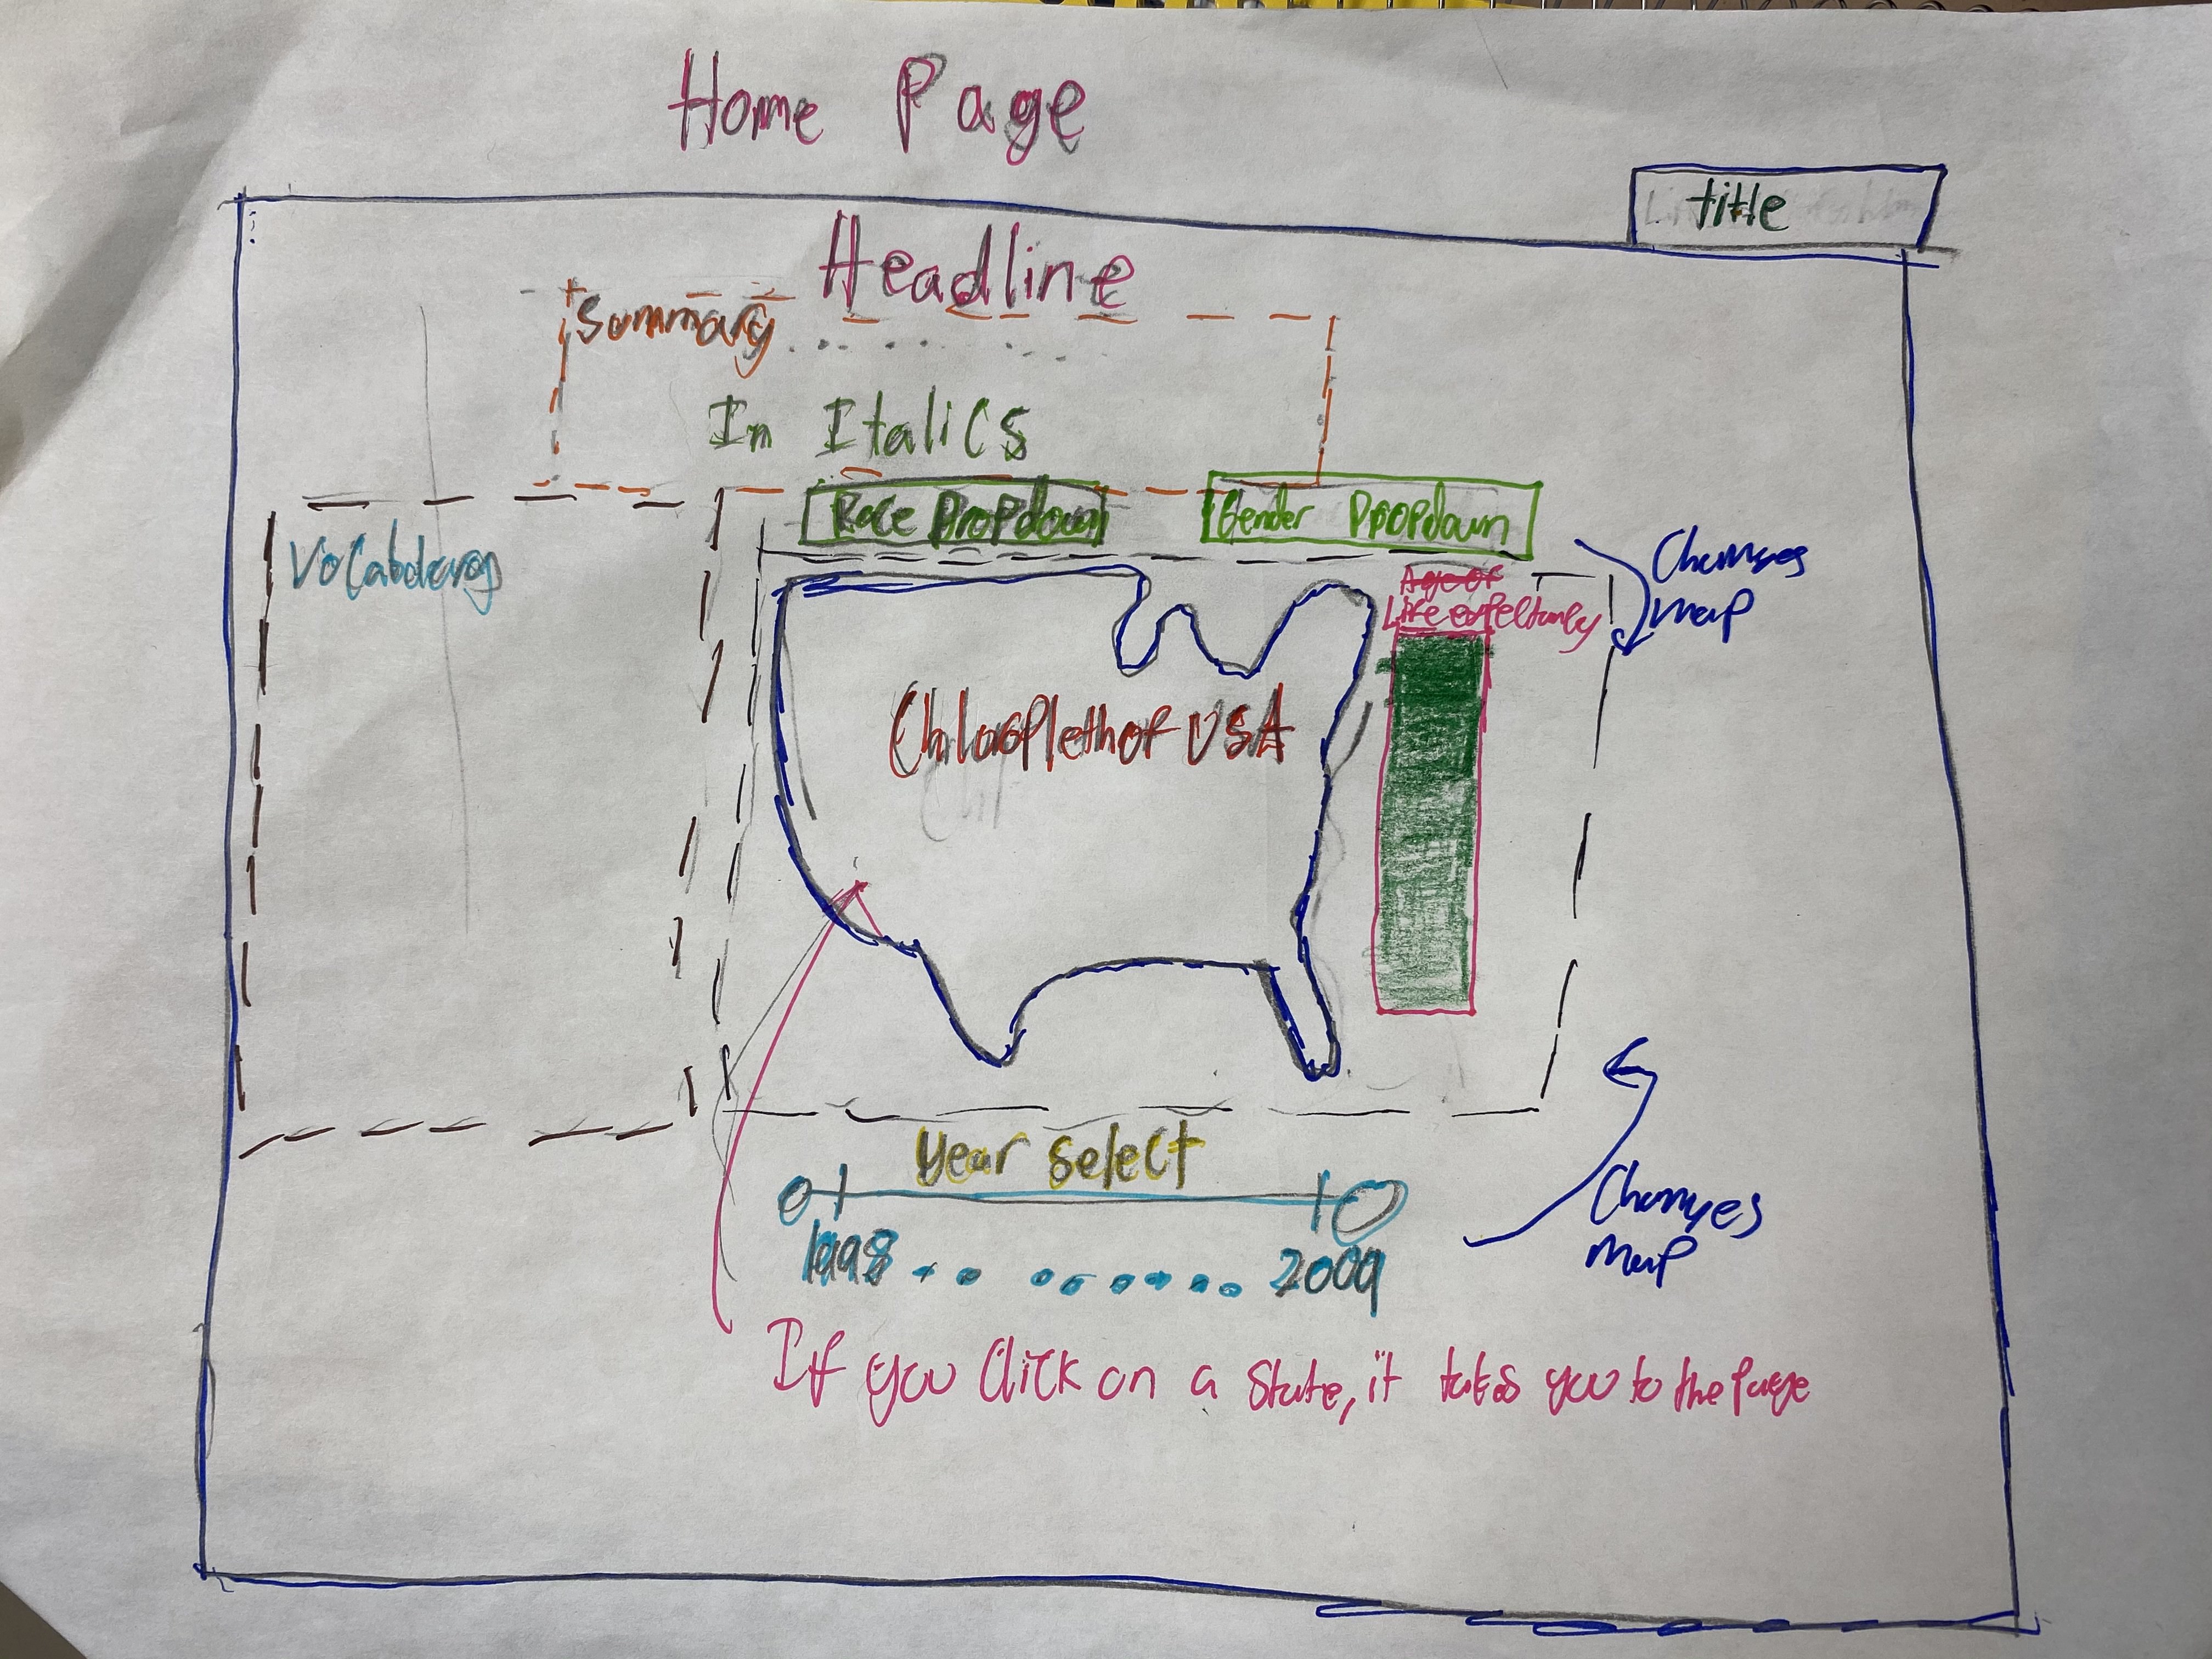 Home Page
title
Headline
Summary.........
In Italics
Race Dropdown
Gender Dropdown
Vocabulary
Changes
Map
Age of
Life expectancy
Chloroplethof USA
Year select
1998 ......... 2009
Changes
Map
If you Click on a State, it takes you to the page